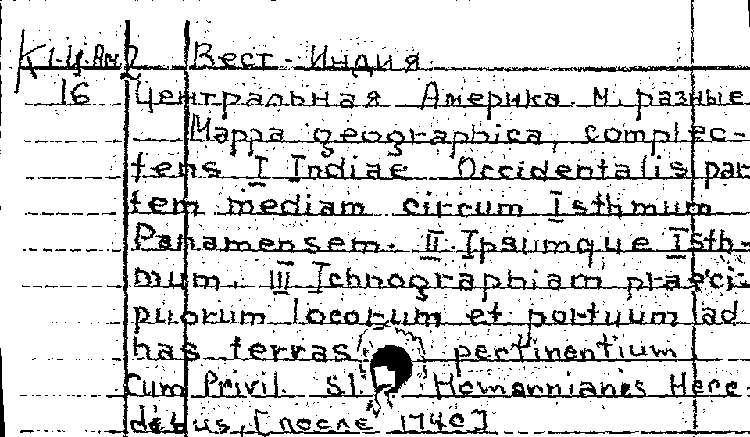 К 1-Ц.Ам 2 Вест-Индия
16 Центральная Америка. М. разные
Mappa geographica, complec-
tens I Indiae Occidentalis par
tem mediam circum Isthmum
Panamensem. II. Ipsumque Isth-
mum. III Ichnographiam praeci-
puorum locorum et portuum ad
has terras pertinentium
Cum Privil. Sl. Homannianes Here
debus, [после 1740]